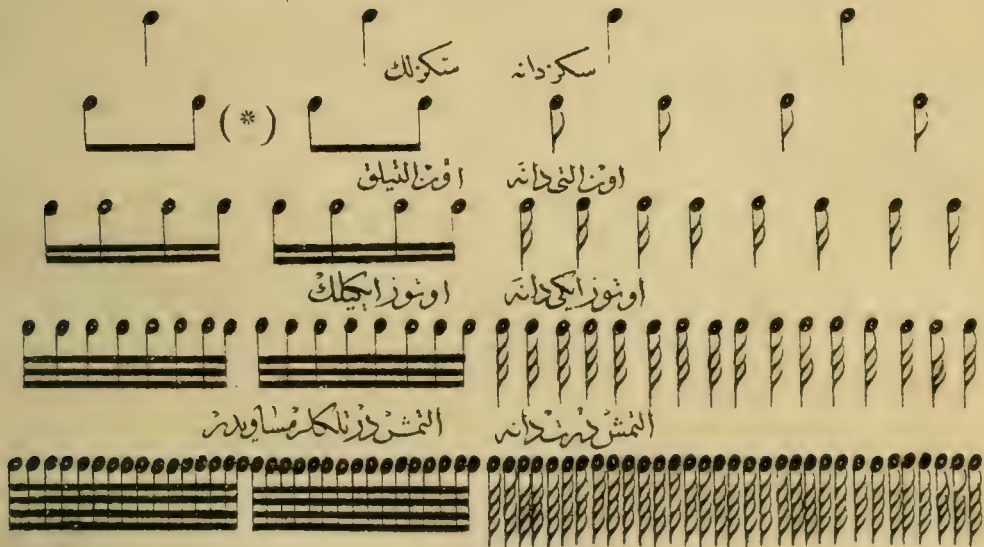 سكز دانه سكزلك
(*)
اون التی دانه اون التیلق
اوتوز ایكی دانه اوتوز ایكیلك
التمش درت دانه التمش درتلكلره مساویدر